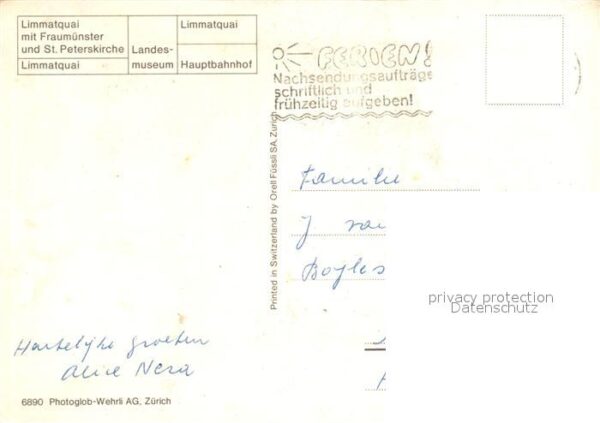 Limmatquai
mit Fraumünster
und St. Peterskirche
Limmatquai
Landes-
museum
Limmatquai
Hauptbahnhof
FERIEN!
Nachsendungsaufträge
schriftlich und
frühzeitig aufgeben!
Printed in Switzerland by Orell Füssli SA, Zürich
Familie
J van
privacy protection
Datenschutz
Hartelijke groeten
6890 Photoglob-Wehrli AG, Zürich